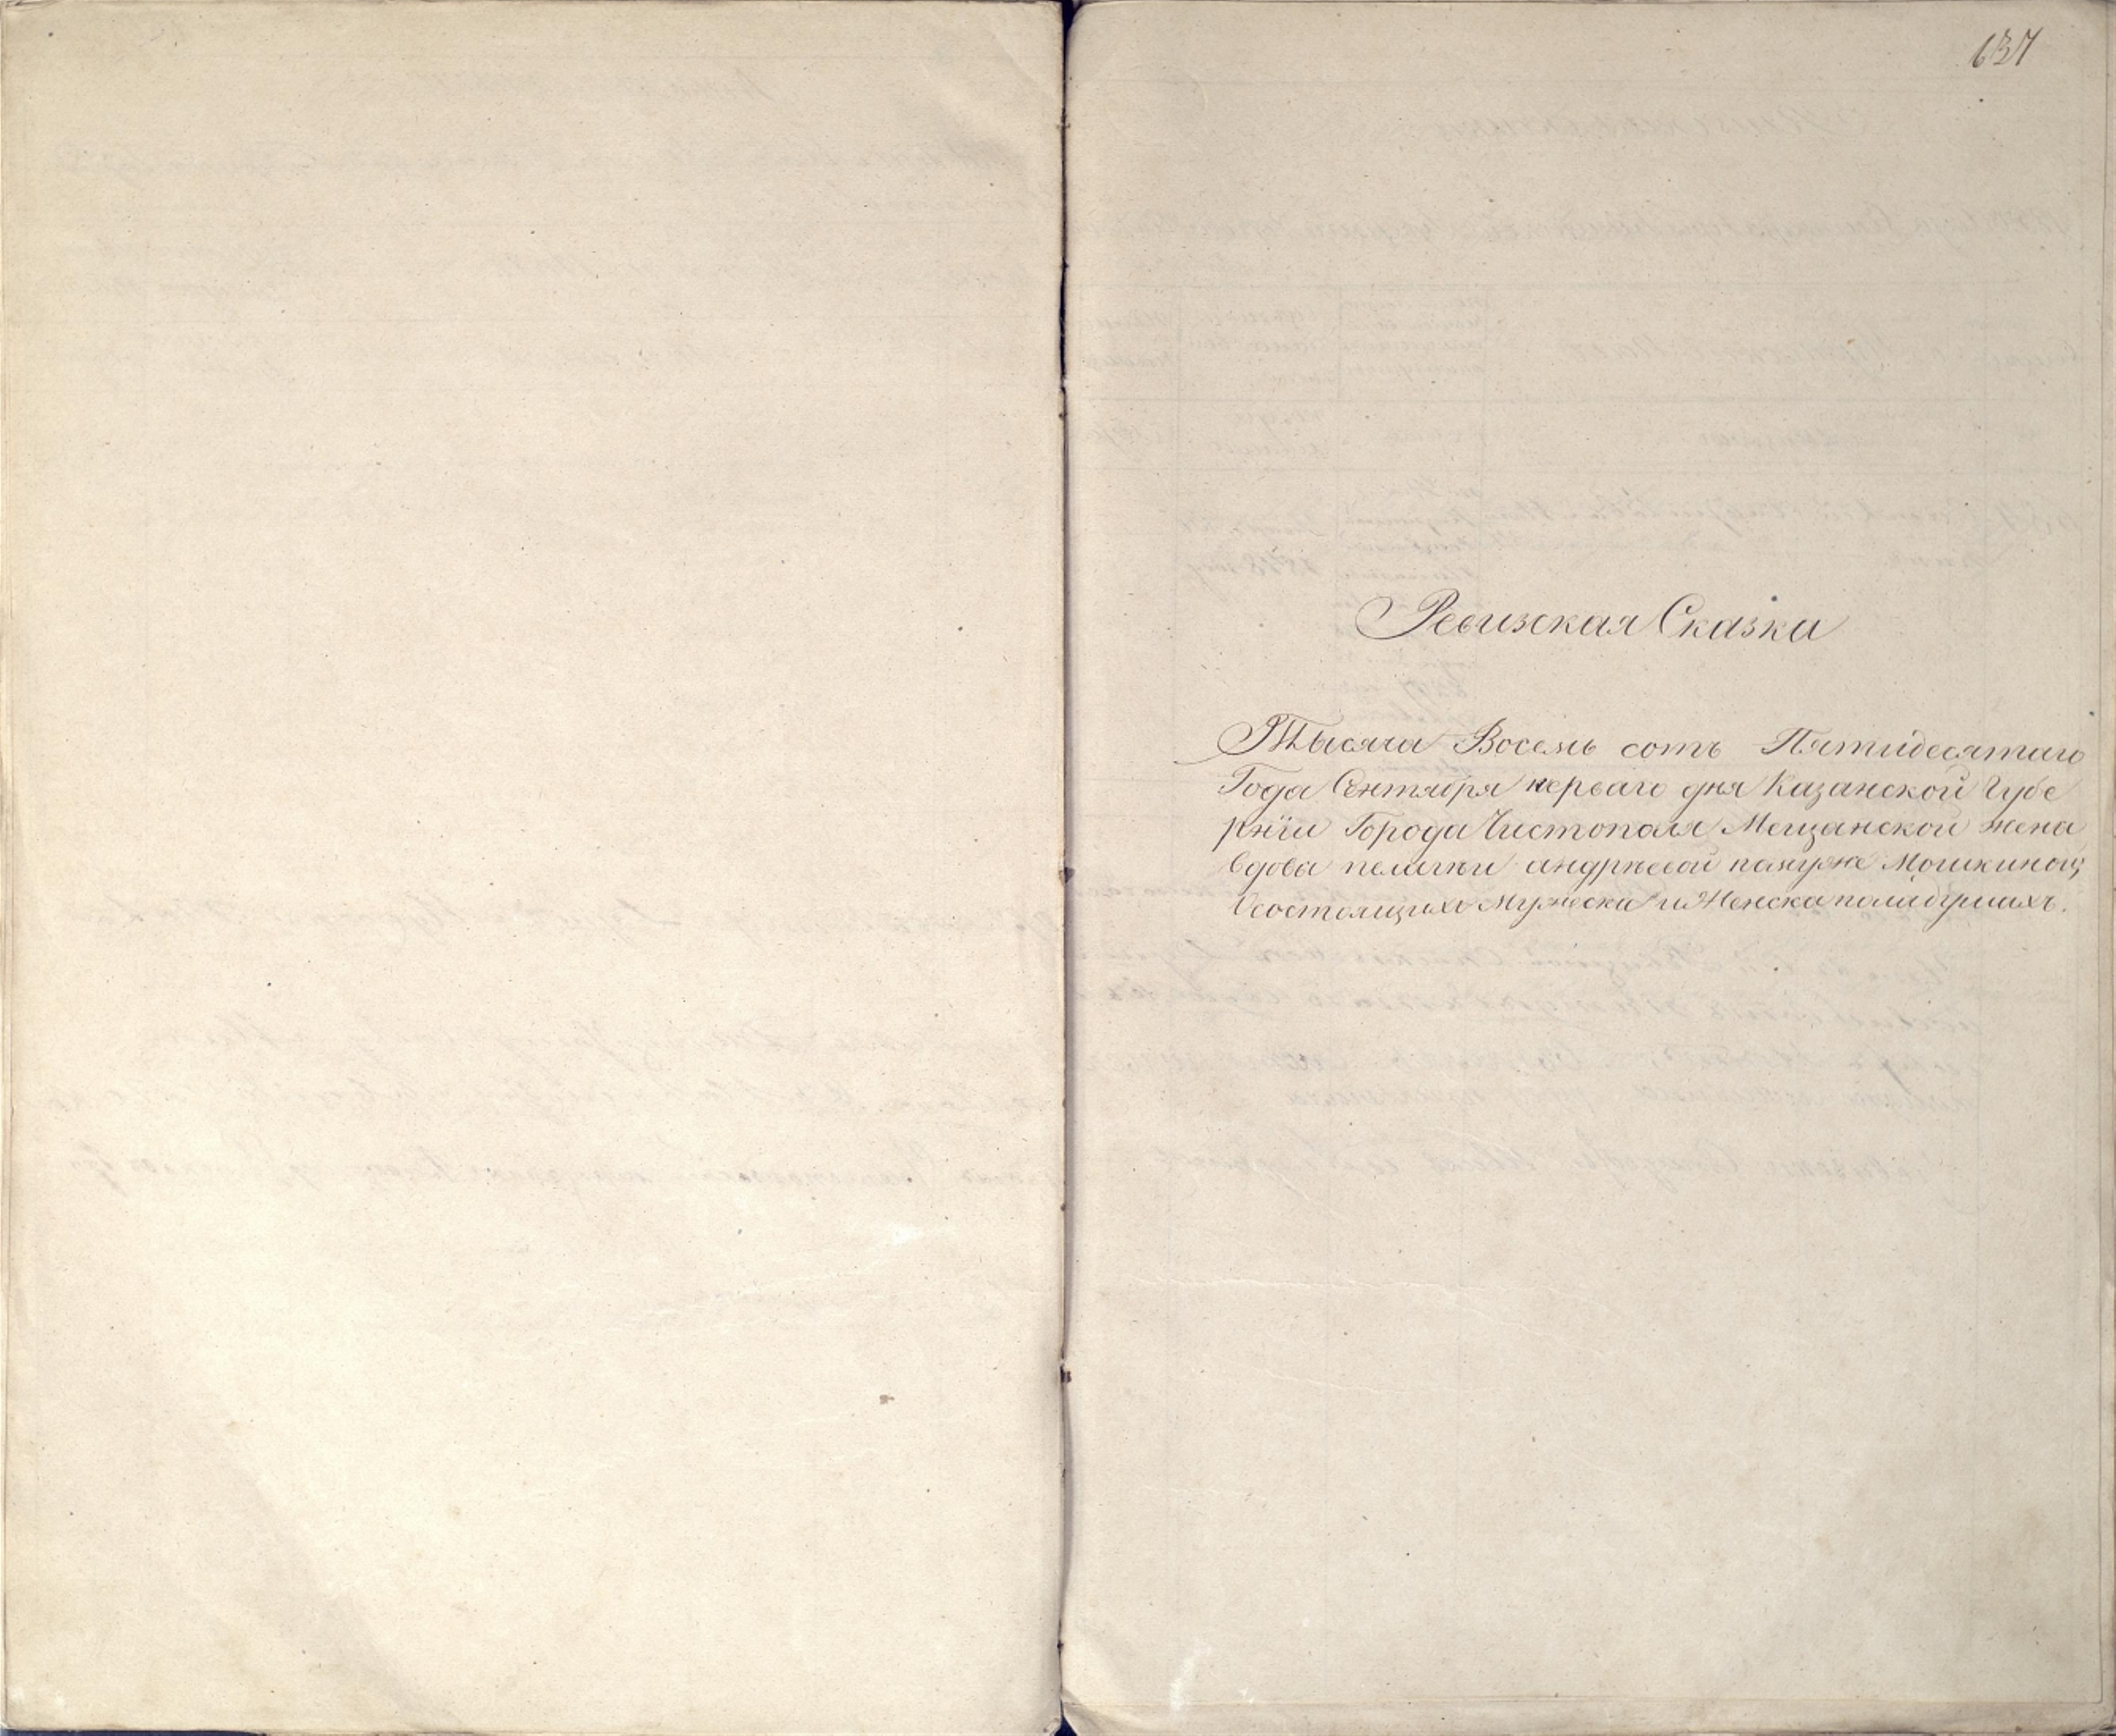 637
Ревизская Сказка
Тысяча Восемь сотъ Пятидесятаго
Года Сентября перваго дня Казанской Губе
рнїи Города Чистополя Мещанской жена
вдова пелагѣи андрѣевой памуже Мошкиной
Осостоящихъ Мужеска и Женска полидушахъ.